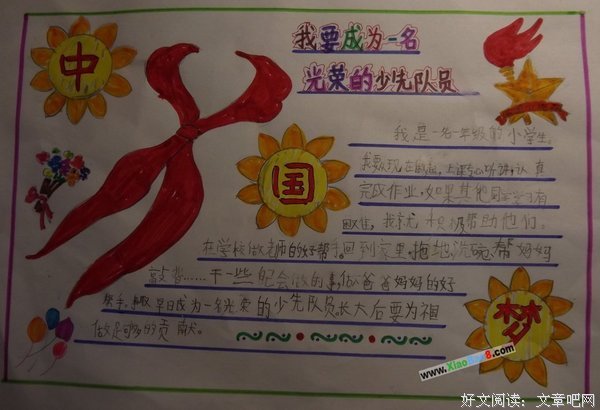 中
国
梦
我要成为一名
光荣的少先队员
我是一名一年级的小学生。
我要从现在做起,上课专心听讲,认真
完成作业,如果其他同学有
困难,我就积极帮助他们。
在学校做老师的好帮手。回到家里,拖地,洗碗、帮妈妈
敲背……干一些我会做的事,做爸爸妈妈的好
帮手,争取早日成为一名光荣的少先队员。长大后要为祖
做足够多的贡献。
www.Xiao8.com
好文阅读:文章吧网